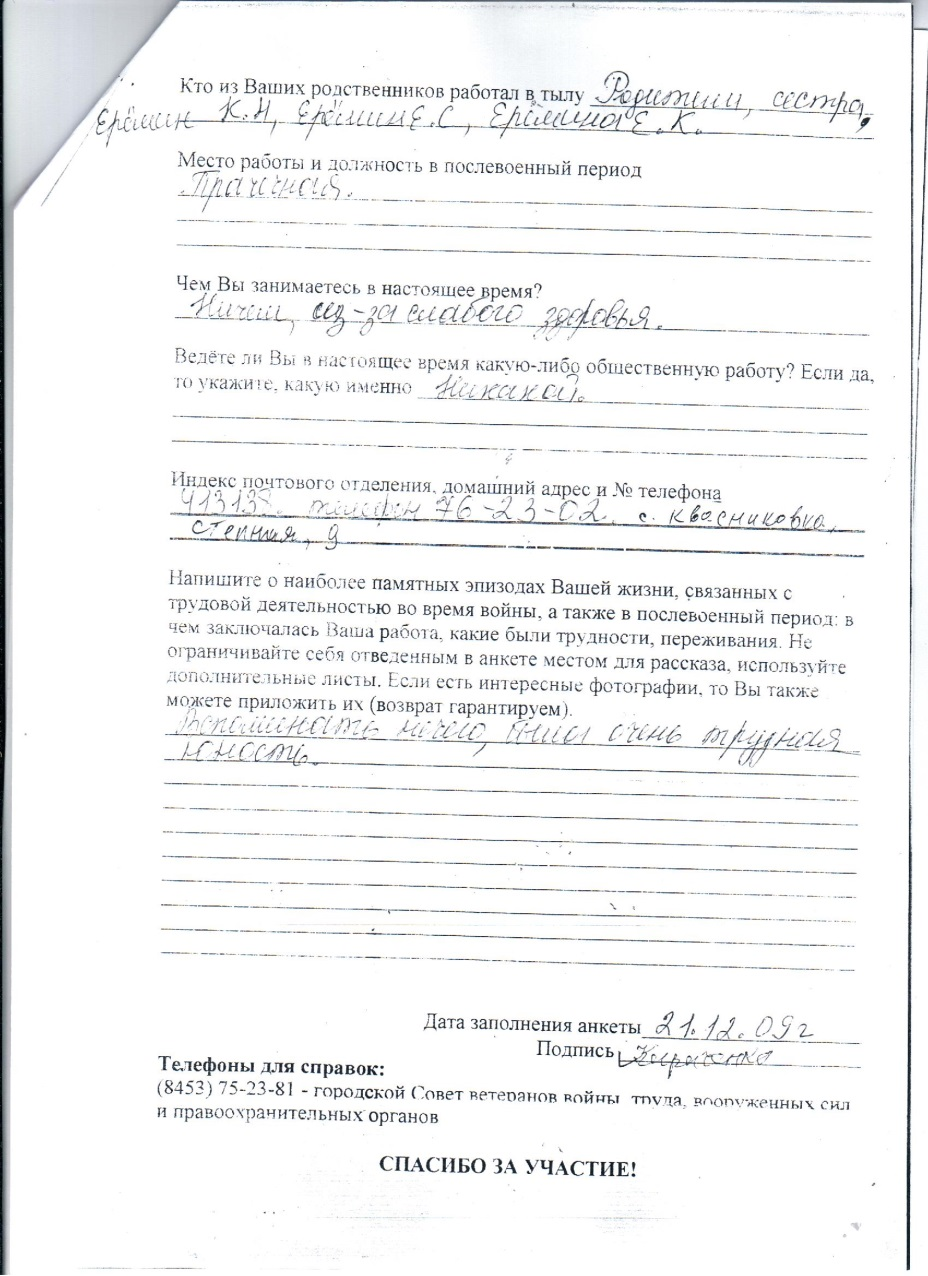 Кто из Ваших родственников работал в тылу Родители, сестра,
Ерёмин К.Н, Ерёмин Е.С, Ерёмина Е.К.
Место работы и должность в послевоенный период
Прачечная.
Чем Вы занимаетесь в настоящее время?
Ничем, из-за слабого здоровья.
Ведёте ли Вы в настоящее время какую-либо общественную работу? Если да,
то укажите, какую именно Никакой.
Индекс почтового отделения, домашний адрес и № телефона
413138. телефон 76-23-02. с. Квасниковка,
степная, 9
Напишите о наиболее памятных эпизодах Вашей жизни, связанных с
трудовой деятельностью во время войны, а также в послевоенный период: в
чем заключалась Ваша работа, какие были трудности, переживания. Не
ограничивайте себя отведенным в анкете местом для рассказа, используйте
дополнительные листы. Если есть интересные фотографии, то Вы также
можете приложить их (возврат гарантируем).
Вспоминать нечего, была очень трудная
юность.
Дата заполнения анкеты 21.12.09г
Подпись
Телефоны для справок:
(8453) 75-23-81 - городской Совет ветеранов войны, труда, вооруженных сил
и правоохранительных органов
СПАСИБО ЗА УЧАСТИЕ!